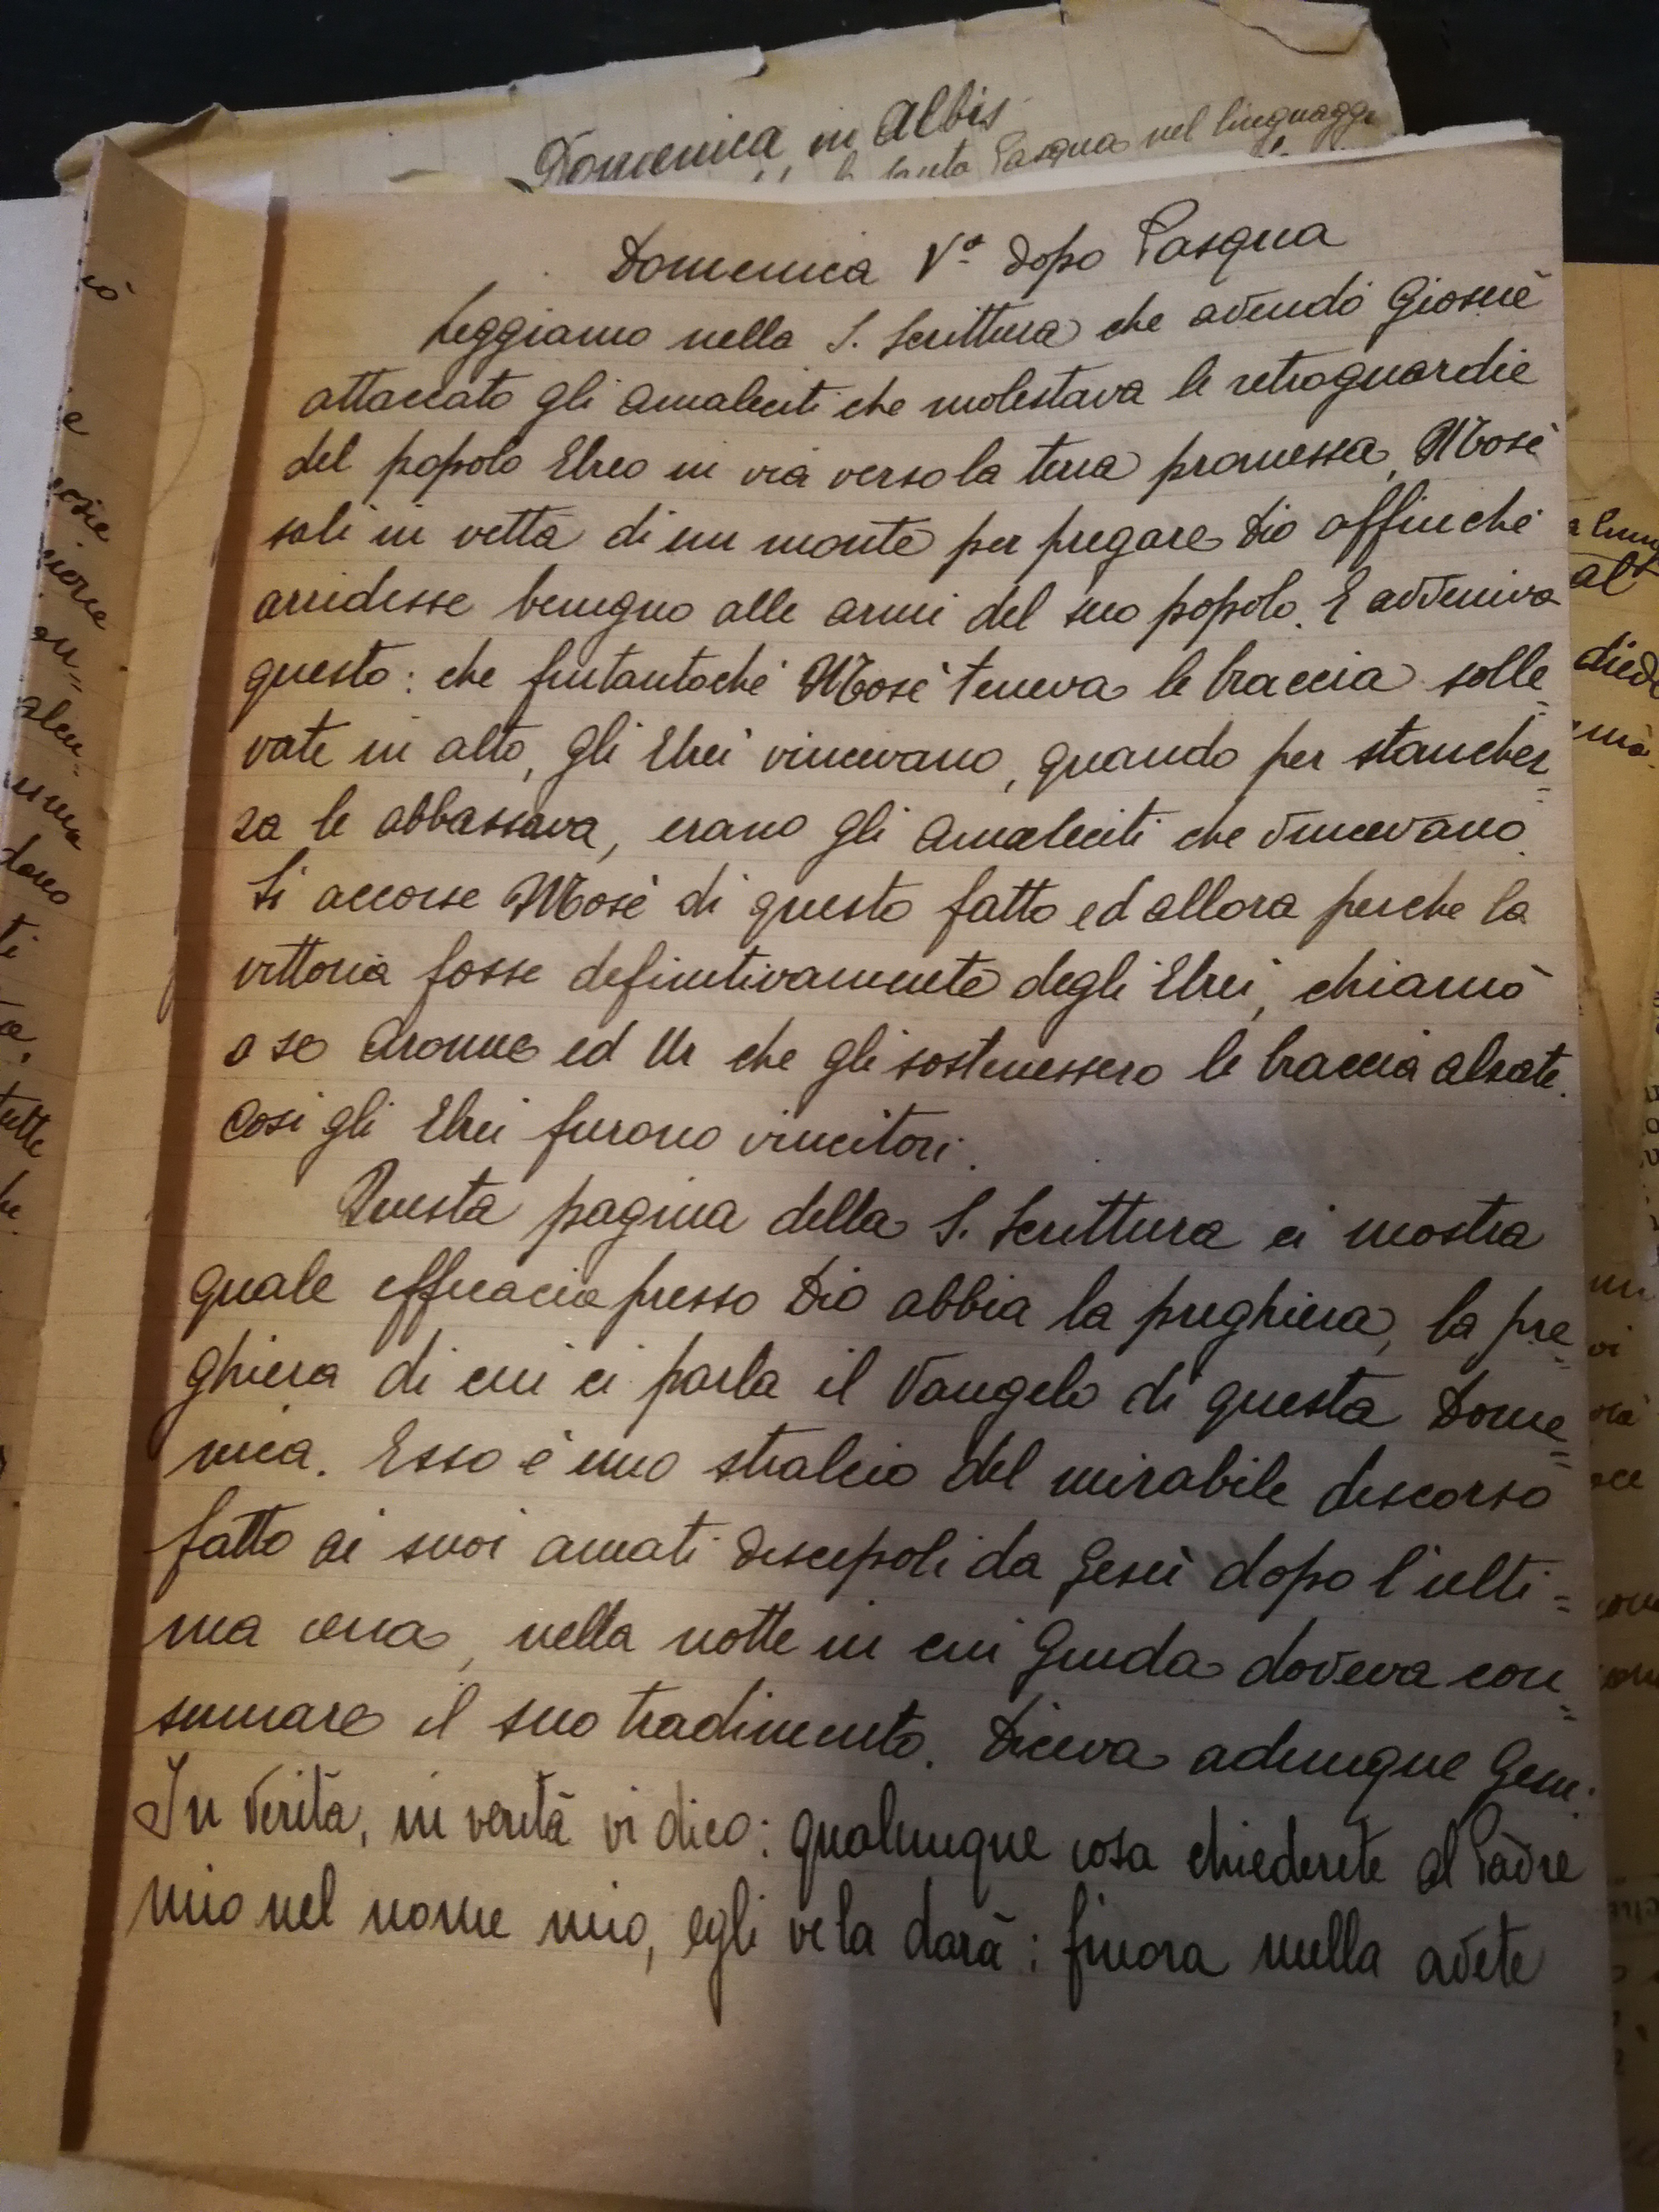 Domenica in Albis
Pasqua nel linguaggi
Domenica Vª dopo Pasqua
Leggiamo nella S. Scrittura che avendo Giosuè
attaccato gli Amaleciti che molestava le retroguardie
del popolo Ebreo in via verso la terra promessa, Mosè
salì in vetta di un monte per pregare Dio affinché
arridesse benigno alle armi del suo popolo. E avveniva
questo: che fintantoché Mosè teneva le braccia solle=
vate in alto, gli Ebrei vincevano, quando per stanchez=
za le abbassava, erano gli Amaleciti che vincevano.
Si accorse Mosè di questo fatto ed allora perche la
vittoria fosse definitivamente degli Ebrei, chiamò
a se Aronne ed Ur che gli sostenessero le braccia alzate.
Così gli Ebrei furono vincitori.
Questa pagina della S. Scrittura ci mostra
quale efficacia presso Dio abbia la preghiera, la pre=
ghiera di cui ci parla il Vangelo di questa Dome=
nica. Esso è uno stralcio del mirabile discorso
fatto ai suoi amati discepoli da Gesù dopo l'ulti=
ma cena, nella notte in cui Giuda doveva con=
sumare il suo tradimento. Diceva adunque Gesù:
In verità, in verità vi dico: qualunque cosa chiederete al Padre
mio nel nome mio, egli ve la darà: finora nulla avete